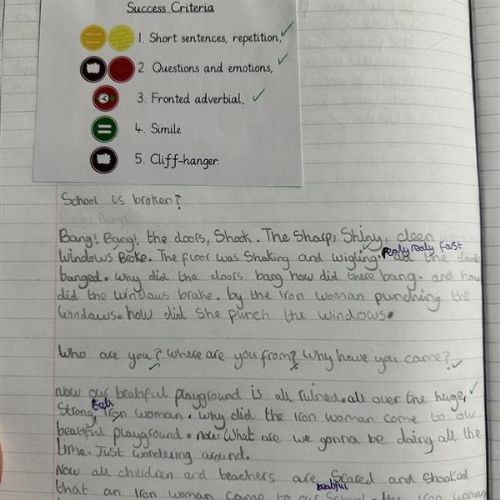 Success Criteria
1. Short sentences, repetition,
2. Questions and emotions,
3. Fronted adverbial,
4. Simile
5. Cliff-hanger.
School is broken?
Bang! Bang! the doors, Shook. The Sharp, Shiny, cleen
windows Broke. The floor was Shaking and wigling. realy realy fast all the doors
banged. Why did the doors bang how did there bang. and how
did the windows brake. by the Iron woman punching the
windows. how did She punch the windows.
Who are you? where are you from? Why have you came?
now our beatiful playground is all ruined. all over the huge,
Strong Iron woman. why did the Iron woman come to our
beatiful playground. now What are we gonna be doing all the
time. Just wondering around.
Now all children and teachers are Scared and Shooked
that an Iron woman came to our beatiful School. the Iron woman